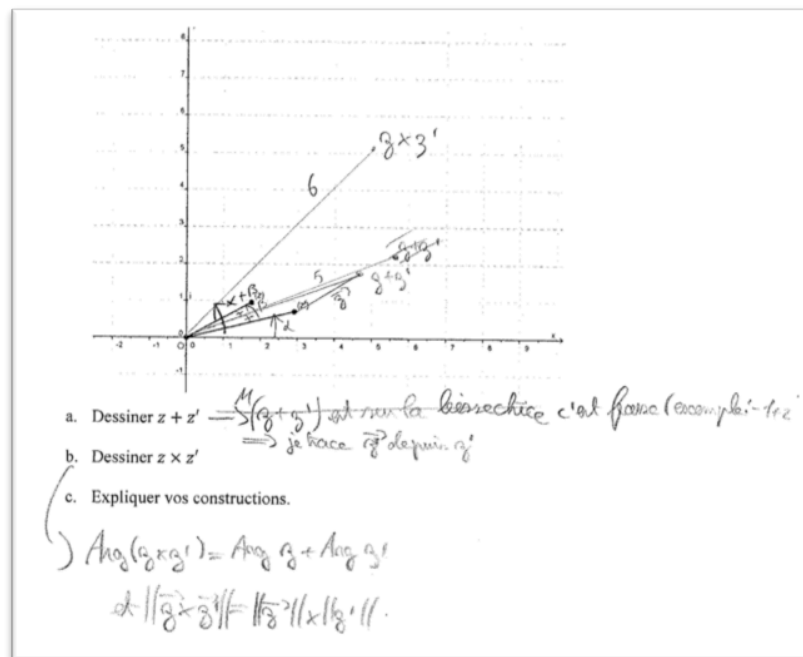 8
7
6
5
4
3
2
1
0
-1
-2 -1 0 1 2 3 4 5 6 7 8 9 x
z × z'
6
α + β
β
5
z + z'
α
a. Dessiner z + z' ⟹ M(z + z') est sur la bissectrice c'est faux
⟹ je trace z⃗ depuis z'
b. Dessiner z × z'
c. Expliquer vos constructions.
) Arg(z × z') = Arg z + Arg z'
et ||z⃗ × z⃗'|| = ||z⃗|| × ||z'||.